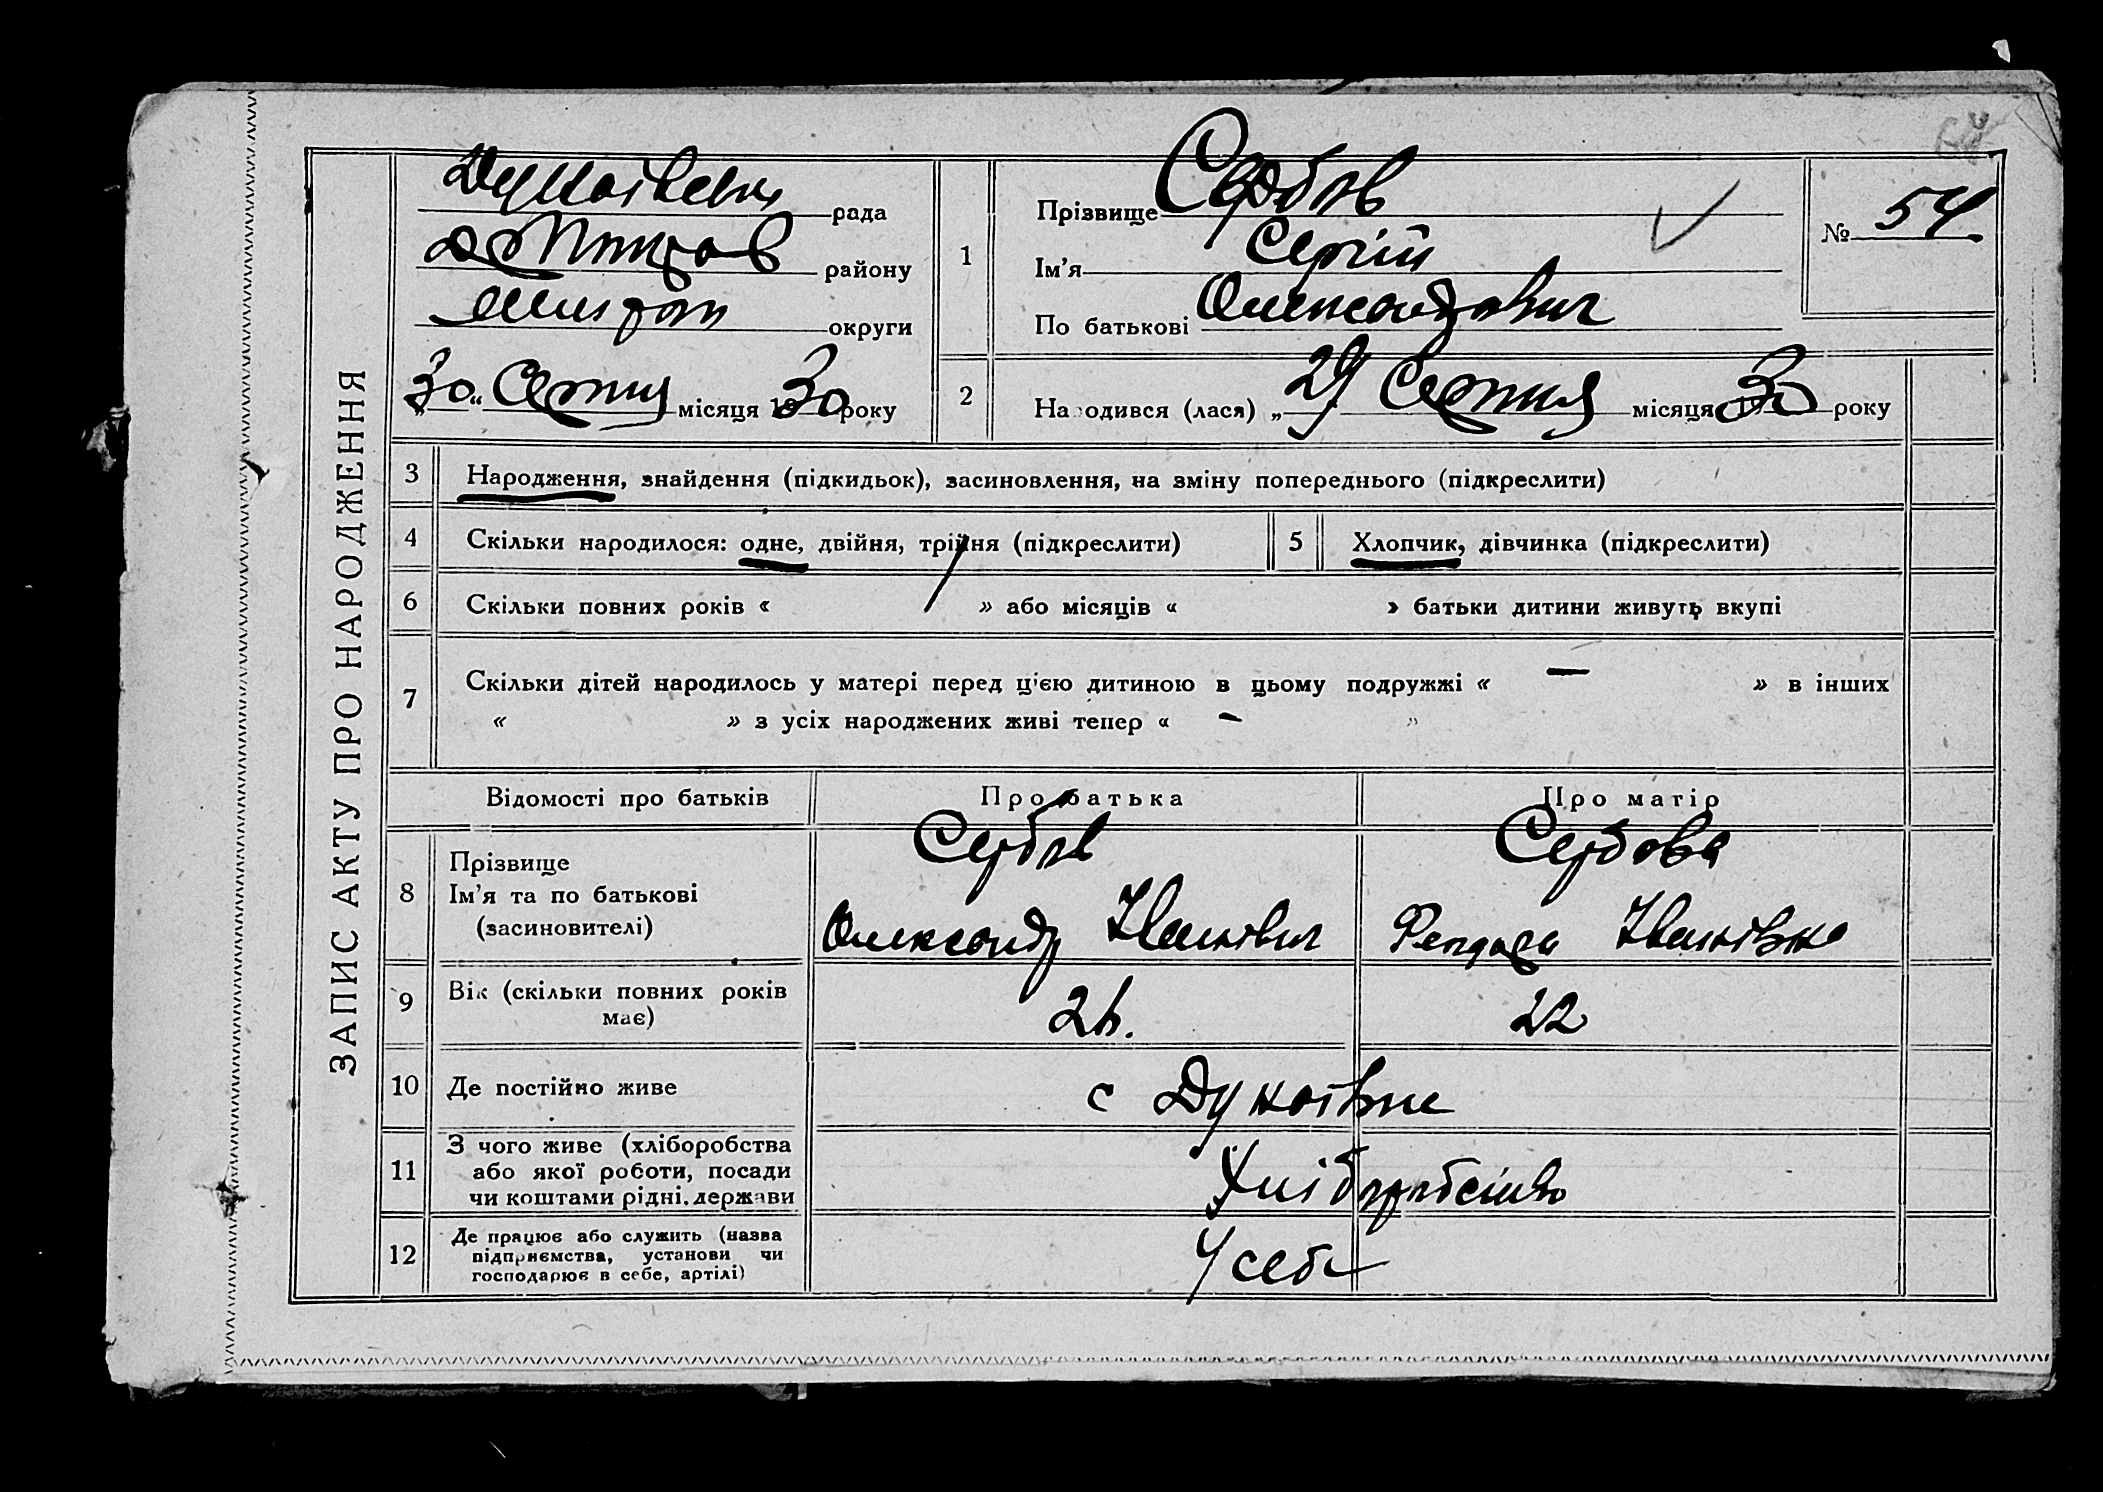 ЗАПИС АКТУ ПРО НАРОДЖЕННЯ
рада
району
округи
„30“ Серпня місяця 1930 року
1
Прізвище Сербов
Ім'я Сергій
По батькові Олександрович
№ 54
2
Народився (лася) „29 Серпня місяця 30 року
3 Народження, знайдення (підкидьок), засиновлення, на зміну попереднього (підкреслити)
4 Скільки народилося: одне, двійня, трійня (підкреслити)
5 Хлопчик, дівчинка (підкреслити)
6 Скільки повних років « » або місяців « » батьки дитини живуть вкупі
7 Скільки дітей народилось у матері перед ц'єю дитиною в цьому подружжі « — » в інших
« » з усіх народжених живі тепер « — »
Відомості про батьків Про батька Про матір
8 Прізвище
Ім'я та по батькові
(засиновителі)
Сербов
Олександр Іванович
Сербова
Іванівна
9 Вік (скільки повних років
має)
22
10 Де постійно живе
с
11 З чого живе (хліборобства
або якої роботи, посади
чи коштами рідні, держави
Хліборобство
12 Де працює або служить (назва
підприємства, установи чи
господарює в себе, артілі)
У себе